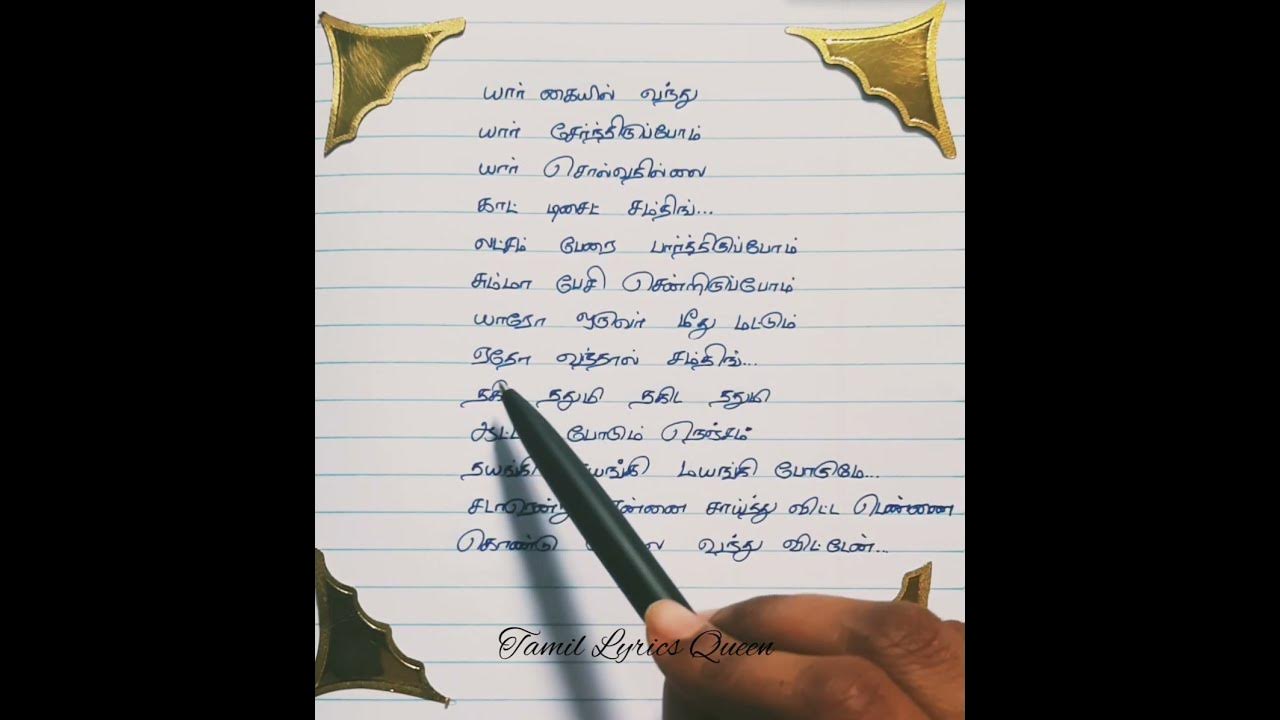 யார் கையில் வந்து
யார் சேர்ந்திருப்போம்
யார் சொல்வதில்லை
காட் டிசைட் சம்திங்...
லட்சம் பேரை பார்த்திருப்போம்
சும்மா பேசி சென்றிருப்போம்
யாரோ ஒருவர் மீது மட்டும்
ஏதோ வந்தால் சம்திங்...
ததுமி தகிட ததுமி
போடும் நெஞ்சம்
தயங்கி மயங்கி போடுமே...
சாய்த்து விட்ட பெண்ணை
கொண்டு வந்து விட்டேன்...
Tamil Lyrics Queen